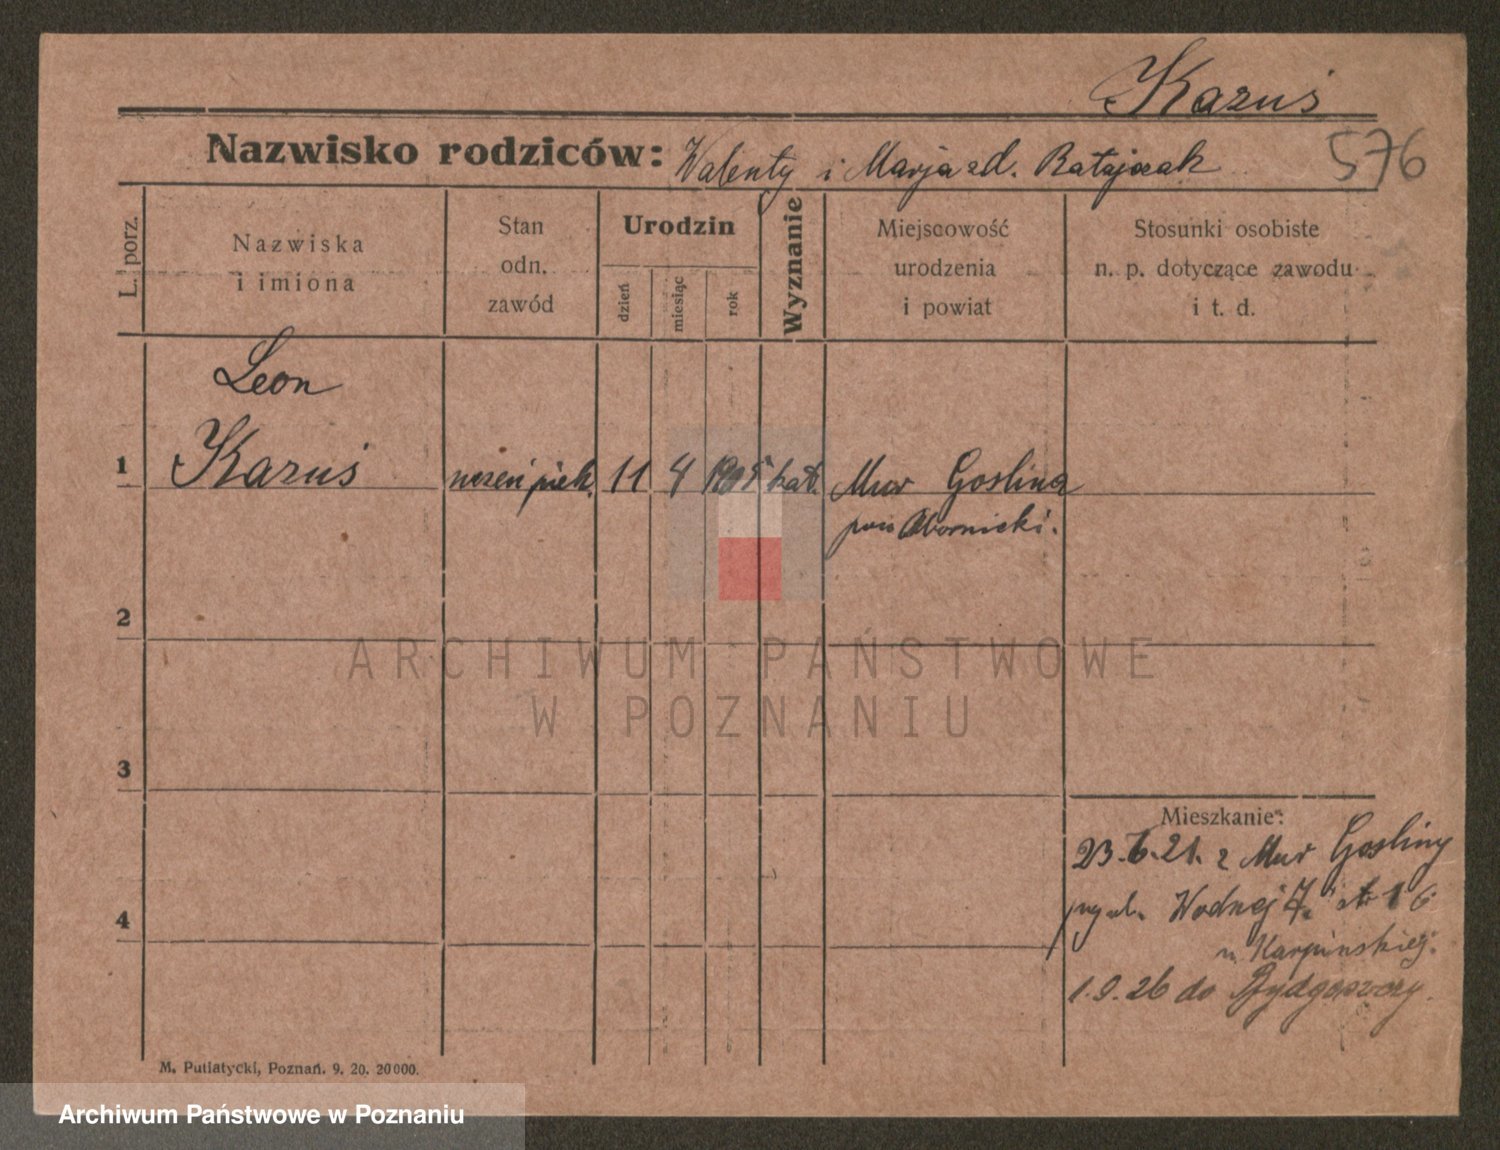 Kazuś
Nazwisko rodziców: Walenty i Marja zd. Ratajczak
576
L. porz.
Nazwiska
i imiona
Stan
odn.
zawód
Urodzin
dzień
miesiąc
rok
Wyznanie
Miejscowość
urodzenia
i powiat
Stosunki osobiste
n. p. dotyczące zawodu
i t. d.
Leon
1 Kazuś uczeń piek. 11 4 1905 kat. Mur Goslina
pow Obornicki.
2
ARCHIWUM PAŃSTWOWE
W POZNANIU
3
Mieszkanie:
23.6.21. z Mur Gosliny
przy ul. Wodnej 7.
4
u Karpińskiej.
1.9.26 do Bydgoszczy.
M. Putiatycki, Poznań. 9. 20. 20000.
Archiwum Państwowe w Poznaniu